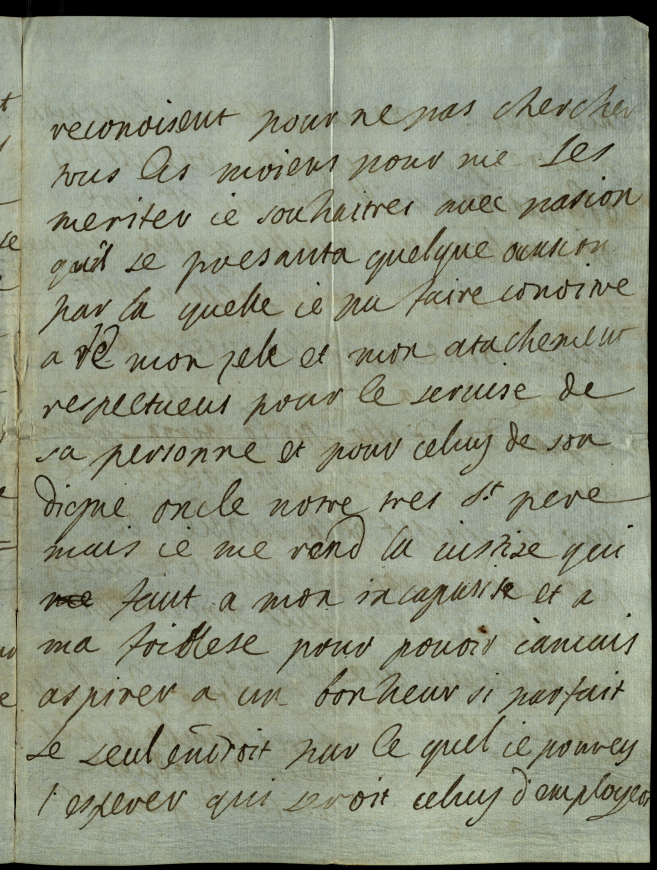 reconoisent pour ne pas chercher
tous les moiens pour me les
meriter ie souhaitres avec pasion
qu'il se presanta quelque ocasion
par la quelle ie pu faire conoitre
a mon zele et mon atachement
respectueus pour le servise de
sa personne et pour celuy de son
digne oncle notre tres st pere
mais ie me rend la iustise qui
faut a mon incapasite et a
ma foiblese pour pouvoir iamais
aspirer a un bonheur si parfait
le seul endroit par le quel ie pourey
l'esperer qui seroit celuy d'employer